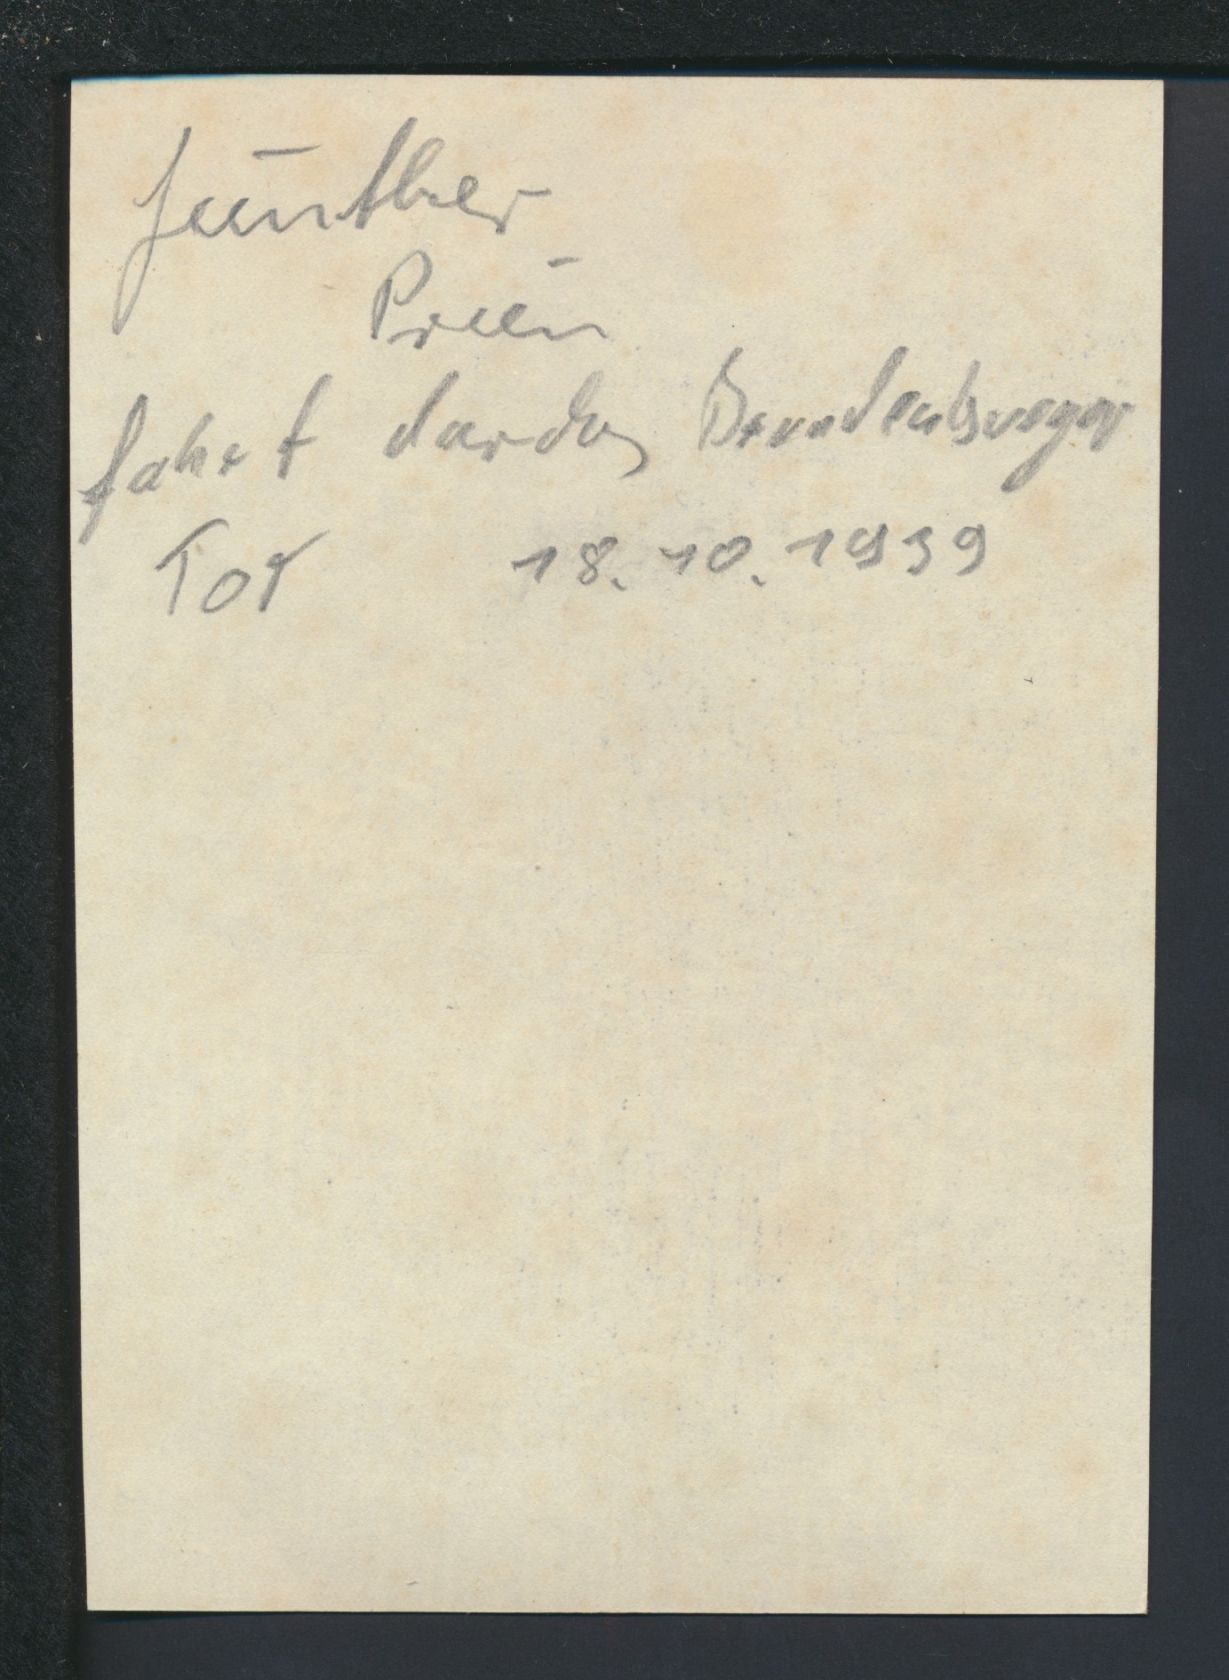 Günther
Prien
fährt durch Brandenburger
Tor 18.10.1939